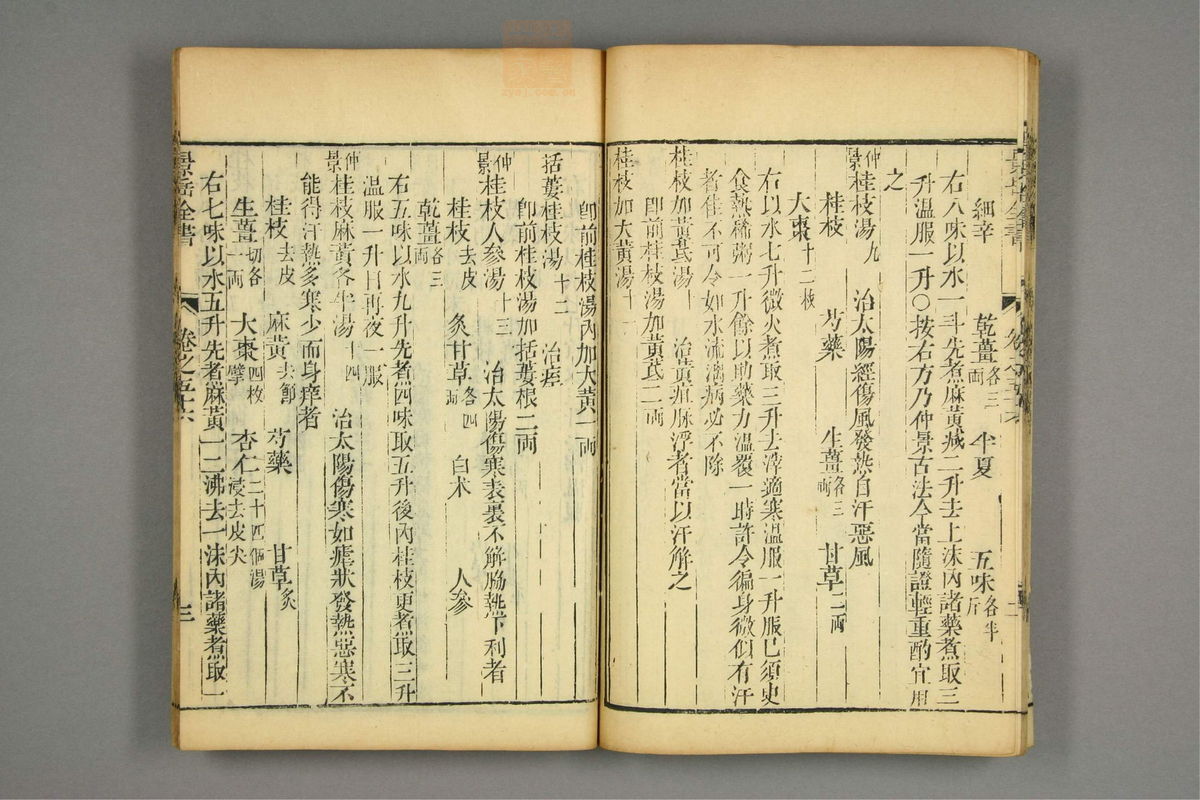 細辛 乾薑各三兩 半夏 五味各半斤
右八味以水一斗先煮麻黃減二升去上沫內諸藥煮取三
升温服一升○按右方乃仲景古法今當隨證輕重酌宜用
之
仲景桂枝湯九 治太陽經傷風發熱自汗惡風
桂枝 芍藥 生薑各三兩 甘草二兩
大棗十二枚
右以水七升微火煮取三升去滓適寒温服一升服已須臾
食熱稀粥一升餘以助藥力温覆一時許令徧身微似有汗
者佳不可令如水流漓病必不除
桂枝加黃芪湯十 治黃疸脉浮者當以汗解之
卽前桂枝湯加黃芪二兩
桂枝加大黃湯十一
卽前桂枝湯內加大黃一兩
括蔞桂枝湯十二 治痓
卽前桂枝湯加括蔞根二兩
仲景桂枝人參湯十三 治太陽傷寒表裏不解脇熱下利者
桂枝去皮 炙甘草各四兩 白术 人參
乾薑各三兩
右五味以水九升先煮四味取五升後內桂枝更煮取三升
温服一升日再夜一服
仲景桂枝麻黃各半湯十四 治太陽傷寒如瘧狀發熱惡寒不
能得汗熱多寒少而身痒者
桂枝去皮 麻黃去節 芍藥 甘草炙
生薑切各一兩 大棗四枚擘 杏仁二十四個湯浸去皮尖
右七味以水五升先煮麻黃一二沸去一沫內諸藥煮取一
景岳全書 卷之五十六 三